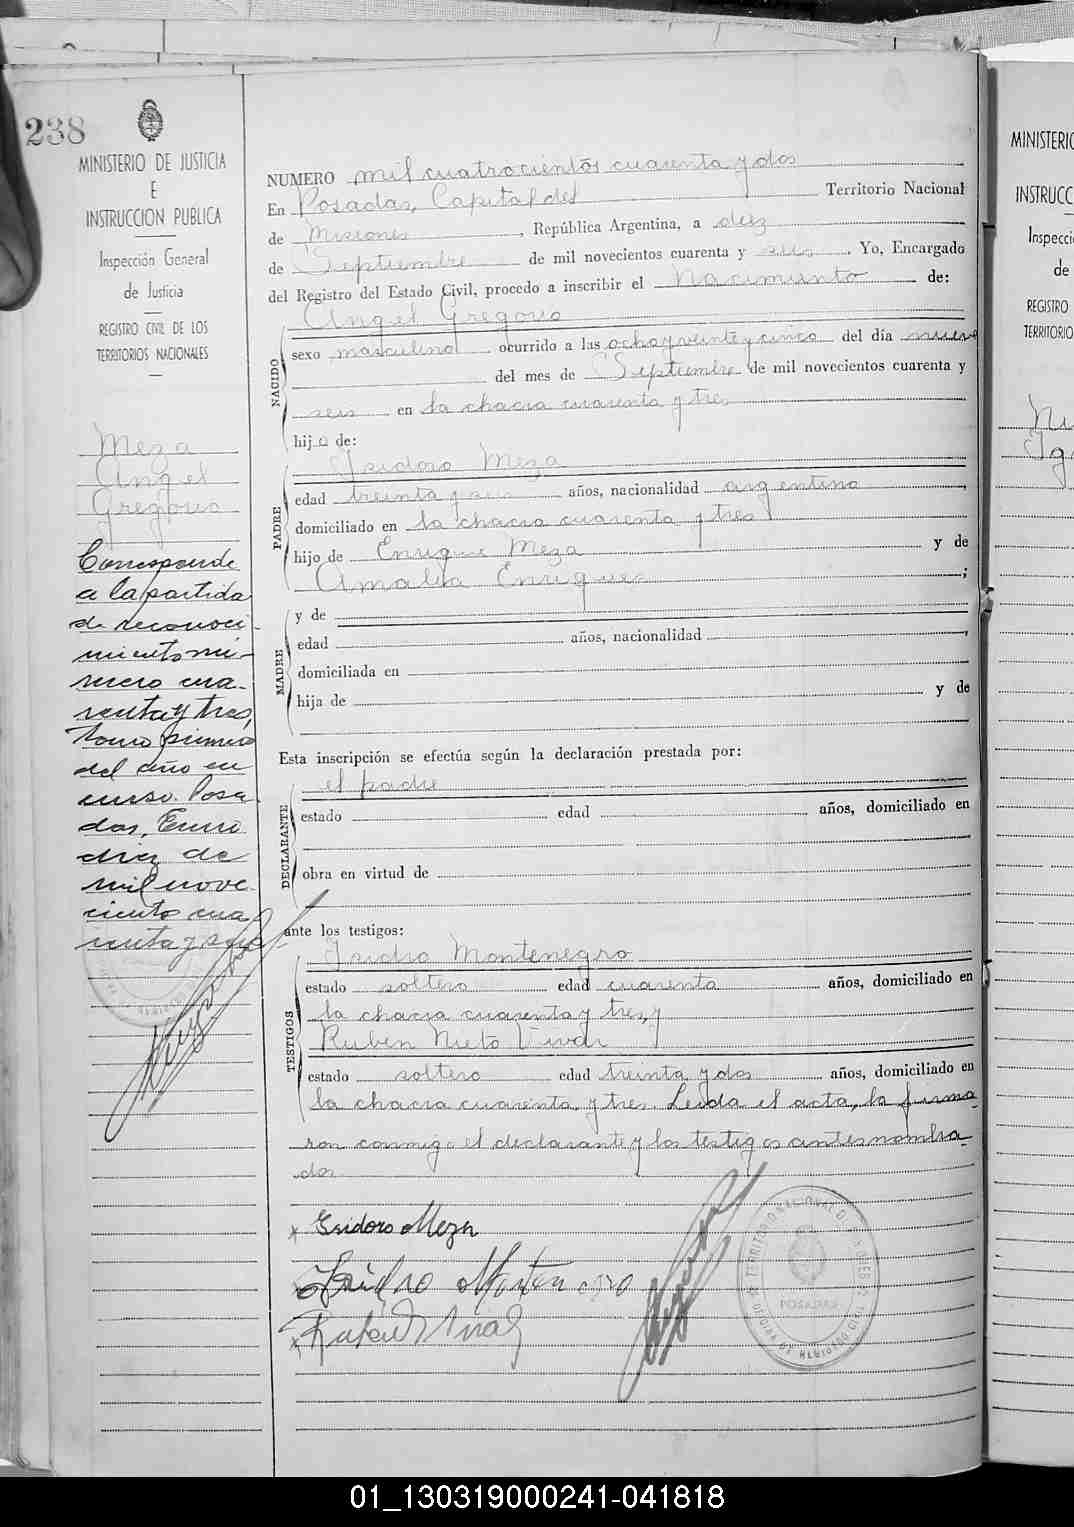 238
MINISTERIO DE JUSTICIA
E
INSTRUCCION PUBLICA
Inspección General
de Justicia
REGISTRO CIVIL DE LOS
TERRITORIOS NACIONALES
Meza
Angel
Gregorio
Corresponde
a la partida
de reconoci-
miento nú-
mero cua-
renta y tres,
tomo primero
del año en
curso. Posa-
das, Enero
diez de
mil nove-
ciento cua
renta y
NUMERO mil cuatrocientos cuarenta y dos
En Posadas, Capital del Territorio Nacional
de Misiones, República Argentina, a diez
de Septiembre de mil novecientos cuarenta y seis. Yo, Encargado
del Registro del Estado Civil, procedo a inscribir el Nacimiento de:
Angel Gregorio
NACIDO
sexo masculino ocurrido a las ocho y veinte y cinco del día nueve
del mes de Septiembre de mil novecientos cuarenta y
seis en la chacra cuarenta y tres
hijo de:
PADRE
Isidoro Meza
edad treinta y seis años, nacionalidad argentino,
domiciliado en la chacra cuarenta y tres
hijo de Enrique Meza y de
Amalia Enriquez;
MADRE
y de
edad años, nacionalidad,
domiciliada en
hija de y de
Esta inscripción se efectúa según la declaración prestada por:
el padre
DECLARANTE
estado edad años, domiciliado en
obra en virtud de
ante los testigos:
TESTIGOS
Isidro Montenegro
estado soltero edad cuarenta años, domiciliado en
la chacra cuarenta y tres, y
Ruben Nieto
estado soltero edad treinta y dos años, domiciliado en
la chacra cuarenta y tres. Leida el acta, la firma
ron conmigo el declarante y los testigos antes nombra
dos.
x Isidoro Meza
Isidro Montenegro
x
TERRITORIO NACIONAL DE MISIONES
POSADAS
OFICINA DE REGISTRO CIVIL
MINISTERIO
INSTRUCC
Inspecci
de
REGISTRO
TERRITORIO
01_130319000241-041818